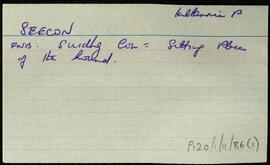 SEECON
Suidhe Con = Sitting Place
of the hound.
P120/1/1/86(1)